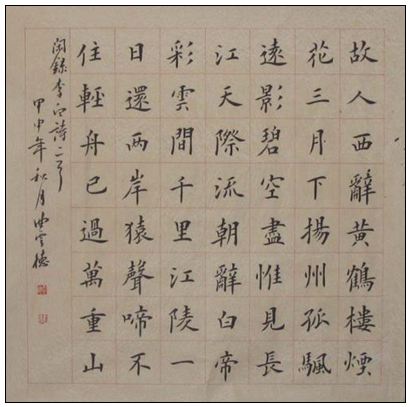 故人西辭黃鶴樓煙
花三月下揚州孤颿
遠影碧空盡惟見長
江天際流朝辭白帝
彩雲間千里江陵一
日還兩岸猿聲啼不
住輕舟已過萬重山
閑錄李白詩二首
甲申年秋月